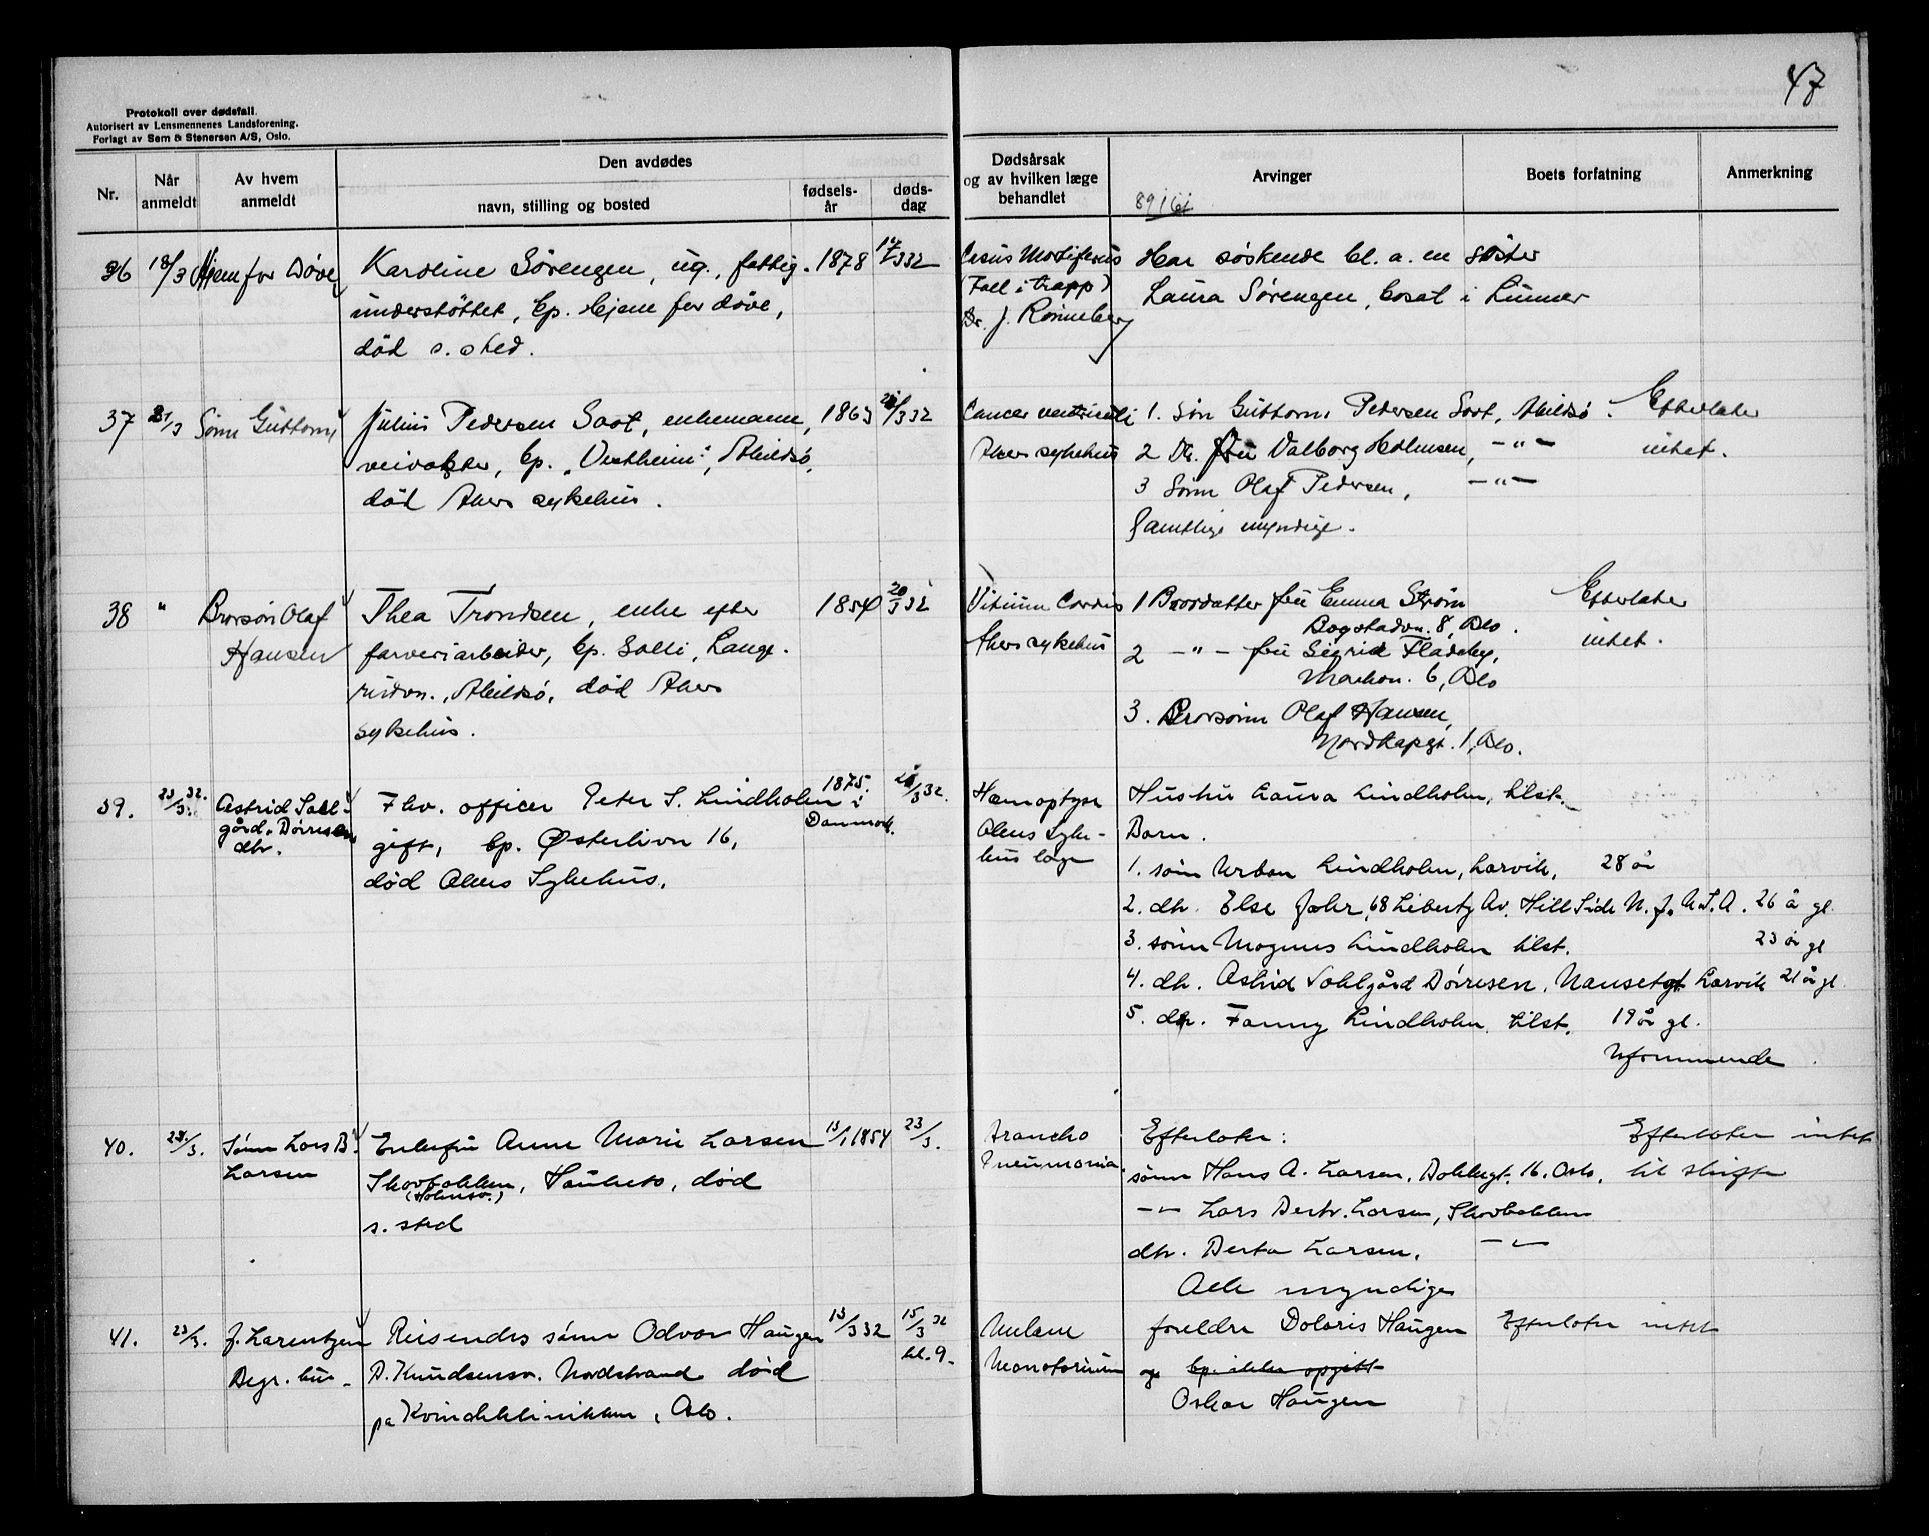 47
Protokoll over dødsfall.
Autorisert av Lensmennenes Landsforening.
Forlagt av Sem & Stenersen A/S, Oslo.
Nr.
Når anmeldt
Av hvem anmeldt
Den avdødes
navn, stilling og bosted
fødsels-år
døds-dag
Dødsårsak og av hvilken læge behandlet
Arvinger
Boets forfatning
Anmerkning
36 18/3 Hjem for Døve
Karoline Sørengen, ug., fattig- 1878 17/3 32
understøttet, bp. Hjem for døve,
død s. sted.
Casus Mortiferus
(Fall i trapp)
Dr. J. Rønneberg
Har søskende bl. a. en søster
Laura Sørengen, bosat i Lunner
37 21/3 Sønn Guttorm
Julius Pedersen Saot, enkemann, 1863 /3 32
veivokter, bp. "Vestheim", Abildsø,
død Akers sykehus.
Cancer ventriculi
Akers sykehus
1. Søn Guttorm Pedersen Saot, Abildsø.
2 Dt. fru Valborg Holmsen, -"-
3 Sønn Olaf Pedersen, -"-
Samtlige myndige.
Efterlater
intet.
38 " Brorsøn Olaf
Hansen
Thea Trondsen, enke efter 1854 20/3 32
farveriarbeider, bp. Solli, Lange-
rudvn., Abildsø, død Akers
sykehus.
Vitium Cordis
Akers sykehus
1 Brordatter fru Emma Strøm
Bogstadvn. 8, Oslo.
2 -"- fru Sigrid Fladeby,
6, Oslo
3. Brorsønn Olaf Hansen,
Nordkapgt. 1, Oslo.
Efterlater
intet.
39. 23/3 32. Astrid Sahl-
gård Dørresen
dtr.
Fhv. officer Peter S. Lindholm 1875. i Danmark. /3 32.
gift, bp. Østerlivn 16,
død Akers Sykehus.
Hæmoptyse
Akers Syke-
hus læge
Hustru Laura Lindholm, tilst.
Barn.
1. sønn Urban Lindholm, Larvik, 28 år
2. dtr. Else Johr, 68 Liberty Av. Hill Side N. J. U.S.A. 26 å gl.
3. sønn Magnus Lindholm tilst. 23 år gl
4. dtr. Astrid Sahlgård Dørresen, Nansetgt Larvik 21 år gl.
5. dtr. Fanny Lindholm, tilst. 19 år gl.
Uformuende
40. 23/3. Sønn Lars B.
Larsen
Enkefru Anne Marie Larsen 13/1 1854 23/3.
Skovbakken, Hauketo, død
(Holmsv.)
s. sted
Broncho
Pneumonia.
Efterlater:
sønn Hans A. Larsen, Dokkegt. 16. Oslo.
-"- Lars Bertr. Larsen, Skovbakken
dtr. Berta Larsen, -"-
Alle myndige
Efterlater intet
til skifte
41. 23/3. J. Larentzen
Begr. bur.
Reisendes sønn Odvar Haugen 13/3 32 15/3 32
kl. 9.
D. Knudsensv. Nordstrand død
pa Kvindeklinikken, Oslo.
foreldre Doloris Haugen
og bp. ikke opgitt
Oskar Haugen
Efterlater intet